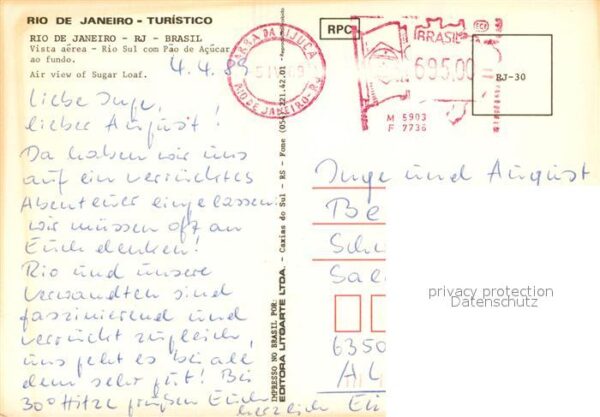 RIO DE JANEIRO - TURÍSTICO
RIO DE JANEIRO - RJ - BRASIL
Vista aérea - Rio Sul com Pão de Açúcar
ao fundo.
Air view of Sugar Loaf.
4.4.89
Liebe Inge,
lieber August!
Da haben wir uns
auf ein verrücktes
Abenteuer eingelassen
wir müssen oft an
Euch denken!
Rio und unsere
Verwandten sind
faszinierend und
verrückt zugleich,
uns geht es bei all
dem sehr gut! Bei
30° Hitze grüßen Euch
herzlich
IMPRESSO NO BRASIL POR:
EDITORA LITOARTE LTDA. - Caxias do Sul - RS - Fone (054) 221.42.01
BARRA DA TIJUCA
RIO DE JANEIRO-RJ
RPC
BRASIL
ECT
695,00
M 5903
F 7736
RJ-30
Inge und August
Be
Sch
Sa
privacy protection
Datenschutz
6350